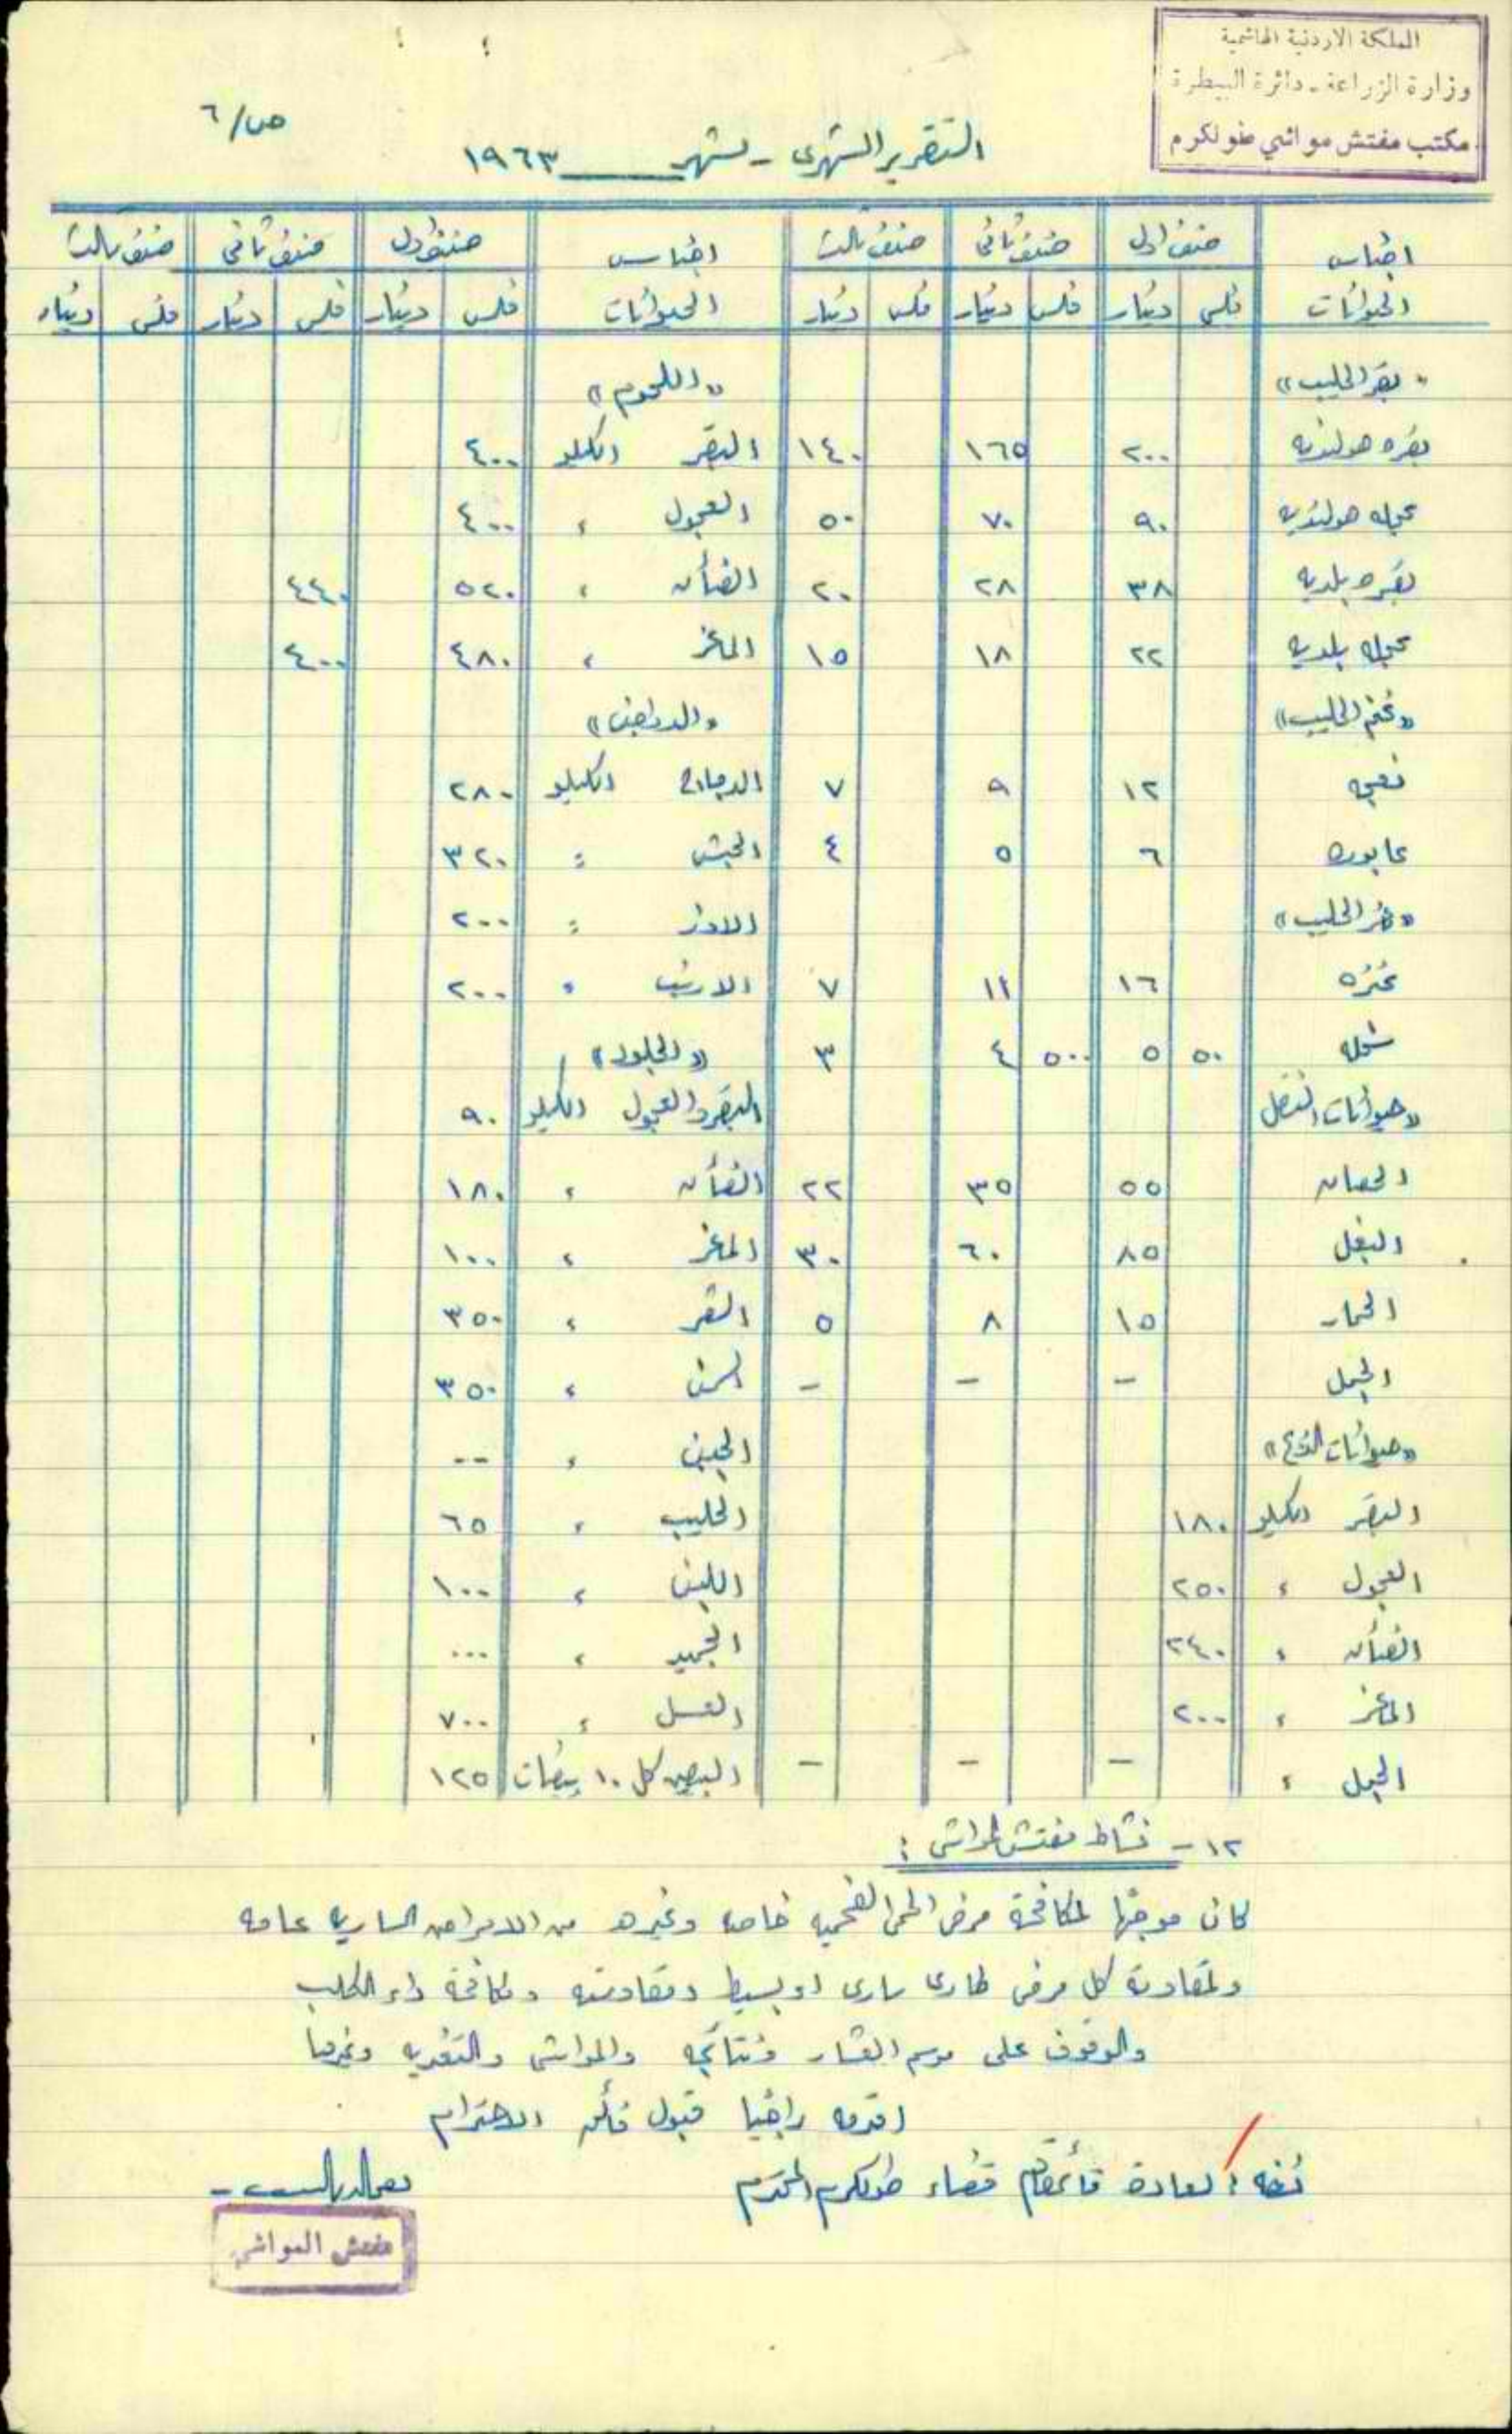 المملكة الاردنية الهاشمية
وزارة الزراعة - دائرة البيطرة
مكتب مفتش مواشي طولكرم
ص/ ٦
التقرير الشهري - لشهر ____ ١٩٦٣
اجناس الحيوانات | صنف اول | صنف ثاني | صنف ثالث | اجناس الحيوانات | صنف اول | صنف ثاني | صنف ثالث
فلس | دينار | فلس | دينار | فلس | دينار | فلس | دينار | فلس | دينار | فلس | دينار
«بقر الحليب» | «اللحوم»
بقره هولنديه | ٢٠٠ | ١٦٥ | ١٤٠ | البقر الكيلو | ٤٠٠
عجله هولنديه | ٩٠ | ٧٠ | ٥٠ | العجول " | ٤٠٠
بقره بلديه | ٣٨ | ٢٨ | ٢٠ | الضأن " | ٥٢٠ | ٤٤٠
عجله بلديه | ٢٢ | ١٨ | ١٥ | الماعز " | ٤٨٠ | ٤٠٠
«غنم الحليب» | «الدواجن»
نعجه | ١٢ | ٩ | ٧ | الدجاج الكيلو | ٢٨٠
عابوره | ٦ | ٥ | ٤ | الحبش " | ٣٢٠
«معز الحليب» | الاوز " | ٢٠٠
عنزه | ١٦ | ١٢ | ٧ | الارنب " | ٢٠٠
سخله | ٥٠ | ٥ | ٥٠٠ | ٤ | ٣ | «الجلود»
«حيوانات النقل | البقر والعجول الكيلو | ٩٠
الحصان | ٥٥ | ٣٥ | ٢٢ | الضأن " | ١٨٠
البغل | ٨٥ | ٦٠ | ٣٠ | الماعز " | ١٠٠
الحمار | ١٥ | ٨ | ٥ | الشعر " | ٣٥٠
الجمل | - | - | - | السمن " | ٣٥٠
«حيوانات الذبح» | الجبن " | --
البقر الكيلو | ١٨٠ | الحليب " | ٦٥
العجول " | ٢٥٠ | اللبن " | ١٠٠
الضأن " | ٢٤٠ | الجميد " | ...
الماعز " | ٢٠٠ | العسل " | ٧٠٠
الجمل " | - | - | - | البيض كل ١٠ بيضات | ١٢٥
١٢ - نشاط مفتش المواشي :
كان موجها لمكافحة مرض الحمى الفحمية خاصه وغيره من الامراض الساريه عامه
ولمقاومة كل مرض طارئ ساري او بسيط ومقاومته ومكافحة داء الكلب
والوقوف على موسم العشار ونتائجه والمواشي والتغذيه وغيرها
اقدمه راجيا قبول فائق الاحترام
نسخه : لسعادة قائمقام قضاء طولكرم المحترم
مفتش المواشي